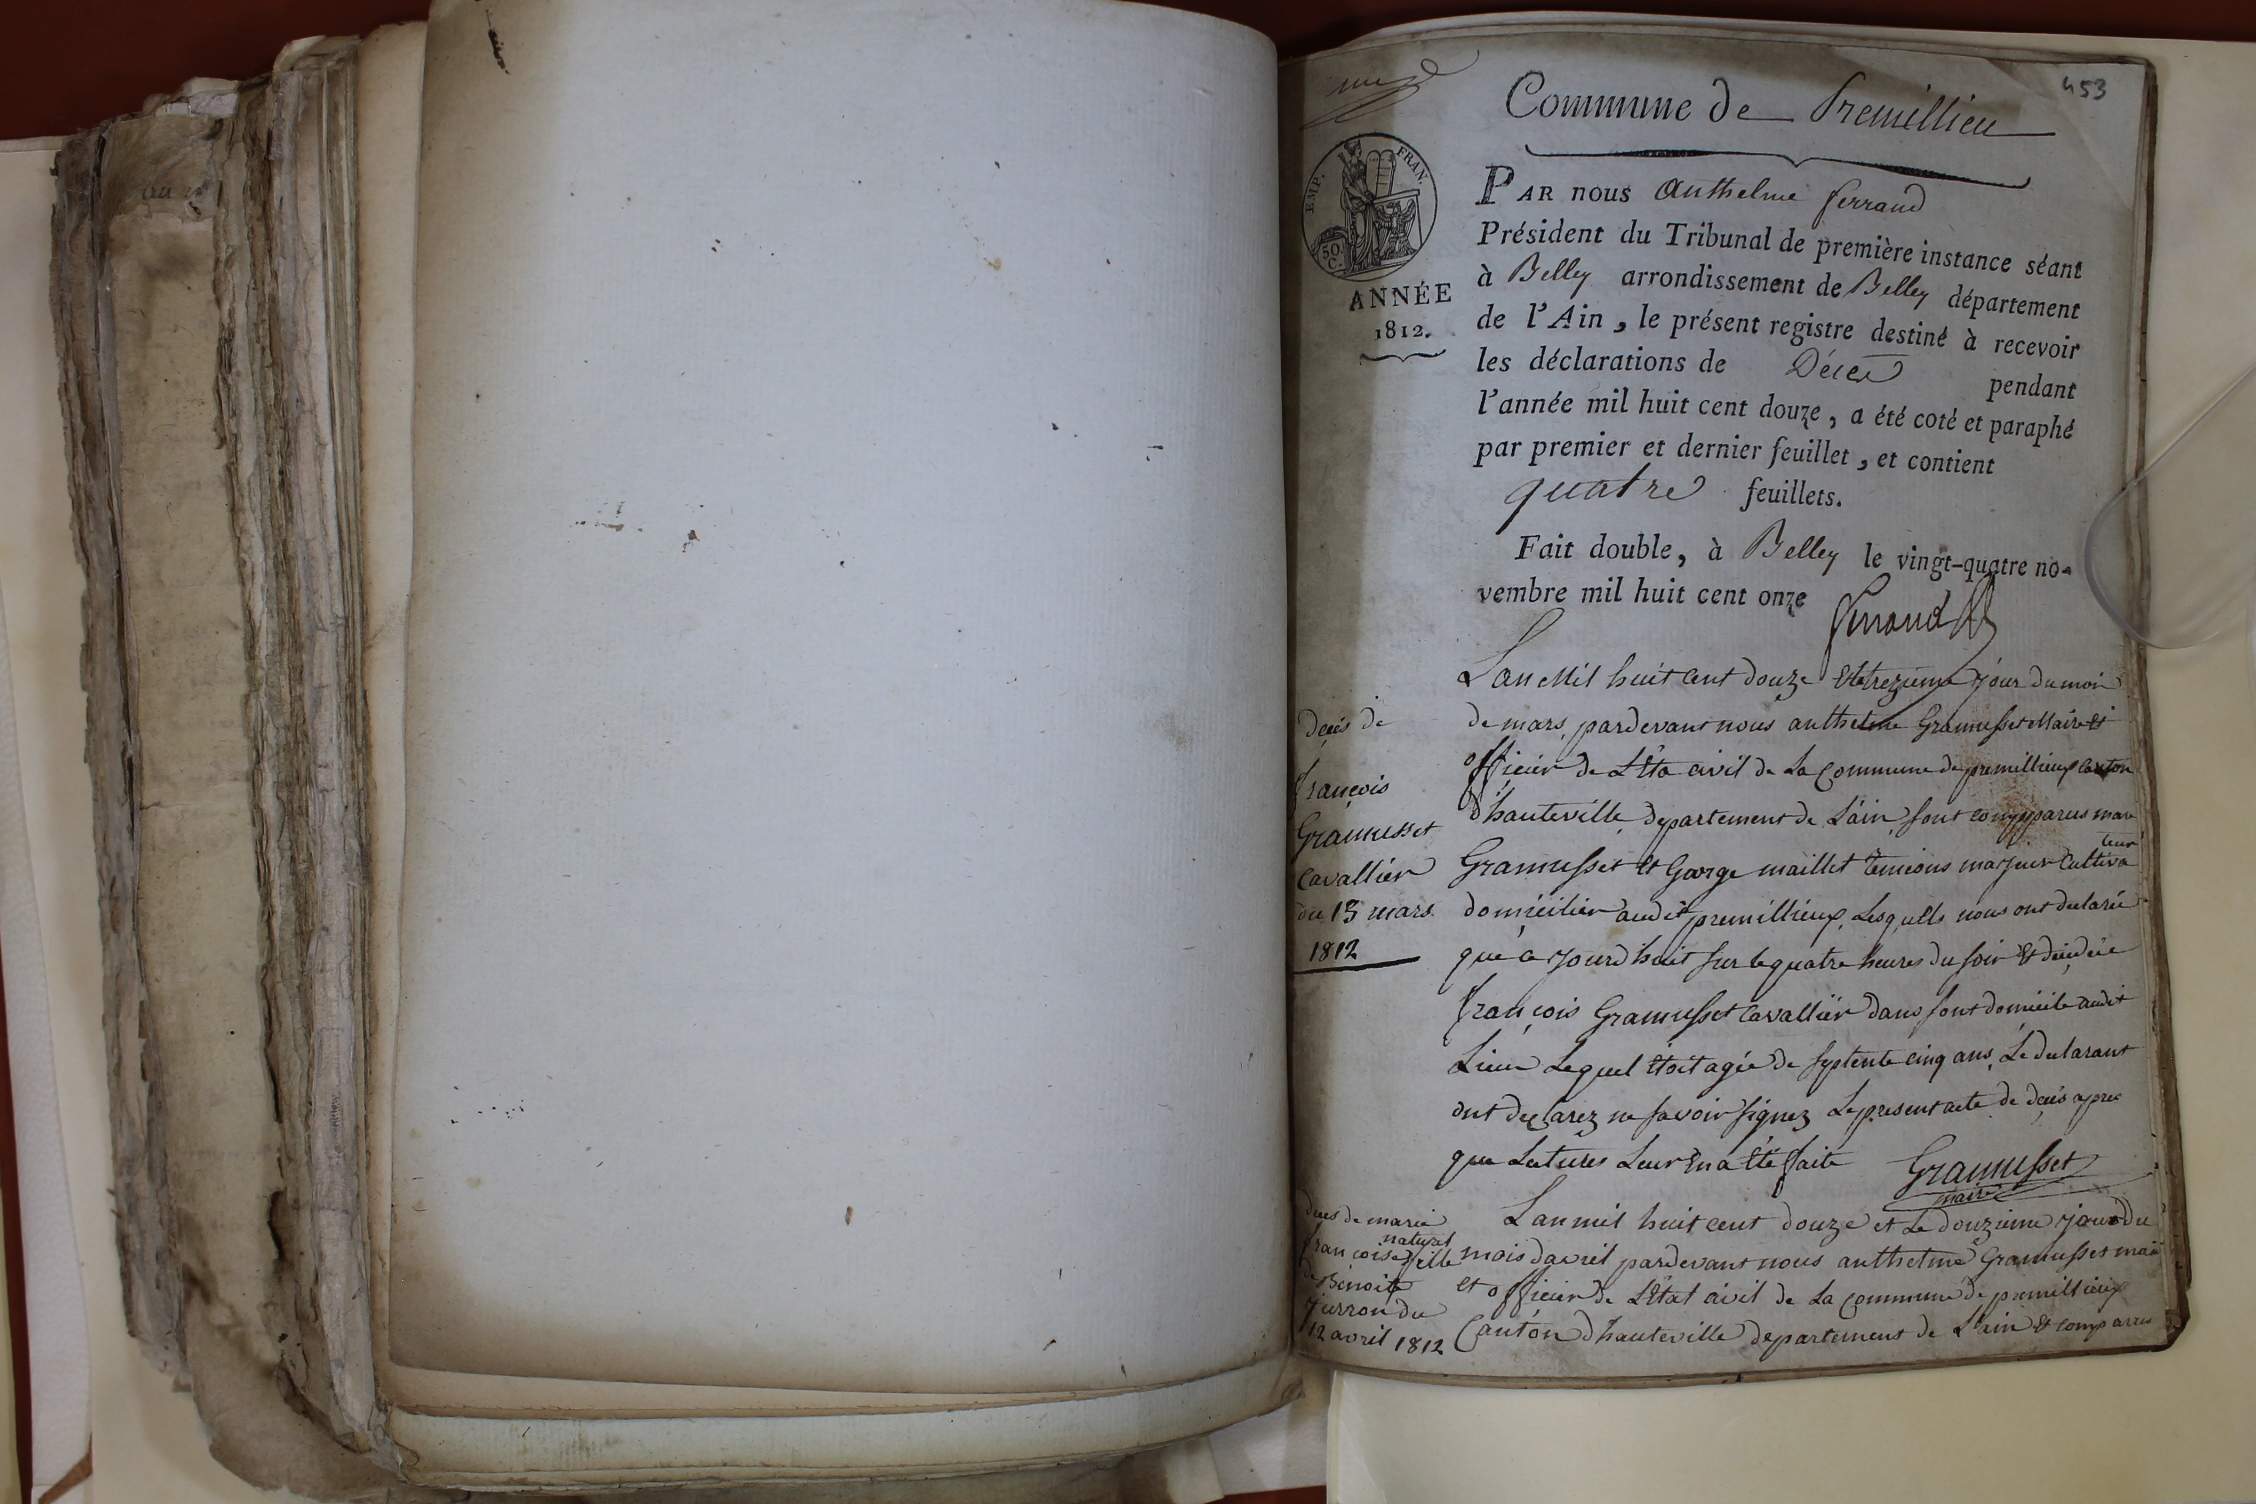 453
Commune de Premillieu
EMP. FRAN.
50 C.
ANNÉE
1812.
PAR nous Anthelme ferrand
Président du Tribunal de première instance séant
à Belley arrondissement de Belley département
de l'Ain, le présent registre destiné à recevoir
les déclarations de Décès pendant
l'année mil huit cent douze, a été coté et paraphé
par premier et dernier feuillet, et contient
quatre feuillets.
Fait double, à Belley le vingt-quatre no-
vembre mil huit cent onze
ferrand
décés de
françois
Gramusset
Cavallier
du 13 mars
1812
Lan Mil huit cent douze et le trezieme jour du moi
de mars pardevant nous anthelme Gramusset Maire et
officier de L'Eta civil de La Commune de premillieux Canton
d'hauteville departement de L'ain sont comparus
Gramusset Et George maillet temions majeur Cultiva
teur
domicilier audit premillieux Lesquels nous ont declaré
que a jourdhuit sur le quatre heures du soir Et décédé
françois Gramusset Cavallier dans sont domicile audit
Lieu Lequel Etoit agée de septente cinq ans Le declarant
ont declarez ne savoir signez Le present acte de decés apres
que Lectures Leur En a Eté faite Gramusset
maire
deces de marie
françoise fille
naturel
de Benoite
Jurron du
12 avril 1812
Lan mil huit cent douze et Le douzieme jour du
mois davril pardevant nous anthelme Gramusset mair
et officier de L'Etat civil de La Commune de premillieux
Canton d'hauteville departement de L'ain Et comparus